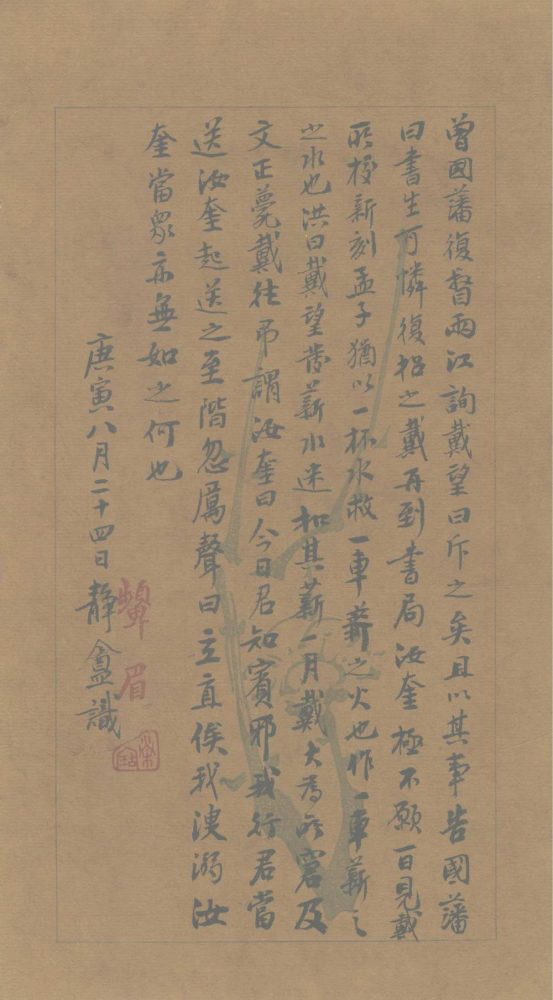 曾國藩復督兩江詢戴望曰斥之矣且以其事告國藩
曰書生可憐復招之戴再到書局汝奎極不願一日見戴
所校新刻孟子猶以一杯水救一車薪之火也作一車薪之
之水也洪曰戴望費薪水迷扣其薪一月戴大為所窘及
文正薨戴往弔謂汝奎曰今日君知賓邪我行君當
送汝奎起送之至階忽厲聲曰立直俟我溲溺汝
奎當眾亦無如之何也
庚寅八月二十四日靜盦識
蟬眉